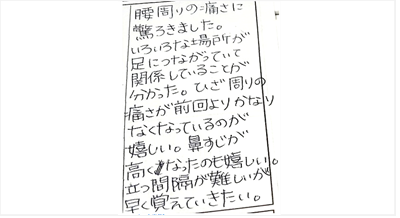 腰周りの痛さに
驚ろきました。
いろいろな場所が
足につながっていて
関係していることが
分かった。ひざ周りの
痛さが前回よりかなり
なくなっているのが
嬉しい。鼻すじが
高くなったのも嬉しい。
立つ間隔が難しいが
早く覚えていきたい。